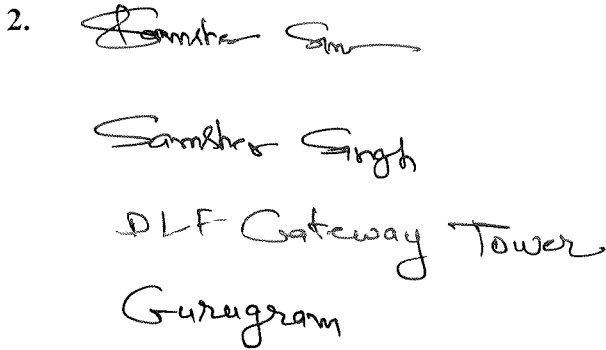 2.
Samsher Singh
DLF Gateway Tower
Gurugram